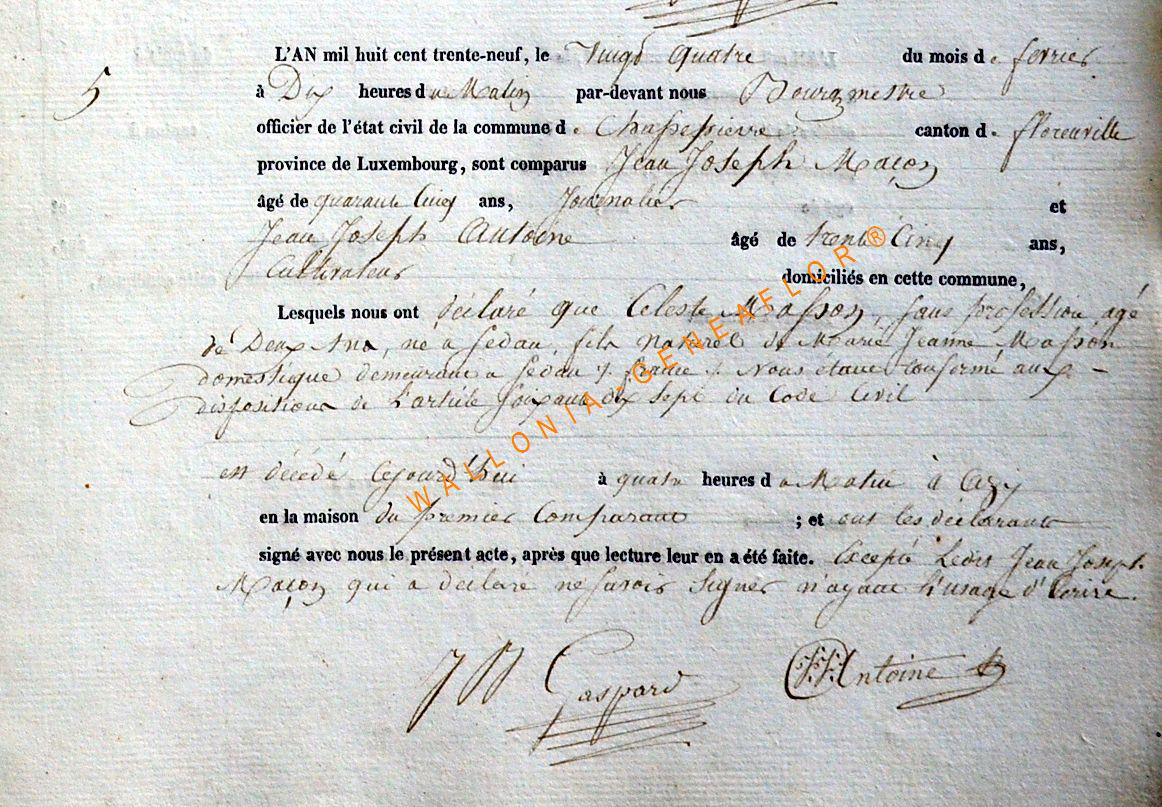 L'AN mil huit cent trente-neuf, le Vingt quatre du mois de fevrier
5
à Dix heures du Matin par-devant nous Bourgmestre
officier de l'état civil de la commune de Chassepierre canton de florenville
province de Luxembourg, sont comparus Jean Joseph Maçon
âgé de quarante Cinq ans, Journalier et
Jean Joseph Antoine âgé de trente Cinq ans,
Cultivateur domiciliés en cette commune,
Lesquels nous ont déclaré que Celeste Masson, sans profession, agé
de Deux Ans, né a Sedan, fils naturel de Marie Jeanne Masson
domestique demeurant a Sedan /. france /. Nous étant Conformé aux
dispositions de L'article Soixante dix Sept du Code Civil
est décédé Cejourd'hui à quatre heures du Matin à Azy
en la maison du premier Comparant ; et ont les déclarants
signé avec nous le présent acte, après que lecture leur en a été faite. Excepté Ledit Jean Joseph
Maçon qui a déclaré ne Savoir Signer n'ayant l'usage d'Ecrire.
Gaspard
JJAntoine
WALLONIA-GENEAFLOR®